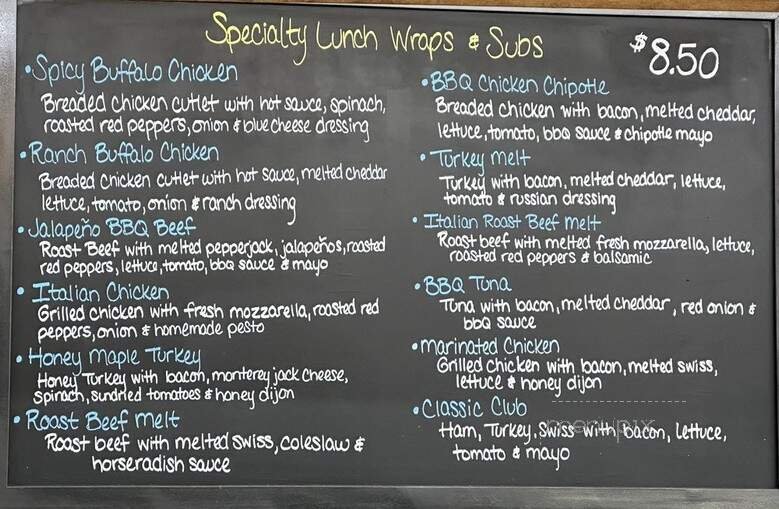 Specialty Lunch Wraps & Subs
$8.50
•Spicy Buffalo Chicken
Breaded chicken cutlet with hot sauce, spinach,
roasted red peppers, onion & blue cheese dressing
•Ranch Buffalo Chicken
Breaded Chicken cutlet with hot sauce, melted cheddar
lettuce, tomato, onion & ranch dressing
•Jalapeño BBQ Beef
Roast Beef with melted pepperjack, jalapeños, roasted
red peppers, lettuce, tomato, bbq sauce & mayo
•Italian Chicken
Grilled chicken with fresh mozzarella, roasted red
peppers, onion & homemade pesto
•Honey Maple Turkey
Honey Turkey with bacon, monterey jack cheese,
spinach, sundried tomatoes & honey dijon
•Roast Beef melt
Roast beef with melted swiss, coleslaw &
horseradish sauce
•BBQ Chicken Chipotle
Breaded chicken with bacon, melted cheddar,
lettuce, tomato, bbq sauce & chipotle mayo
•Turkey melt
Turkey with bacon, melted cheddar, lettuce,
tomato & russian dressing
•Italian Roast Beef melt
Roast beef with melted fresh mozzarella, lettuce,
roasted red peppers & balsamic
•BBQ Tuna
Tuna with bacon, melted cheddar, red onion &
bbq sauce
•marinated Chicken
Grilled chicken with bacon, melted swiss,
lettuce & honey dijon
•Classic Club
Ham, Turkey, Swiss with bacon, lettuce,
tomato & mayo
menupix